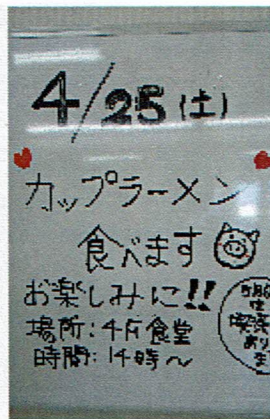 4/25(土)
カップラーメン
食べます
お楽しみに!!
場所:4F食堂
時間:14時~
喫茶
あり
ま